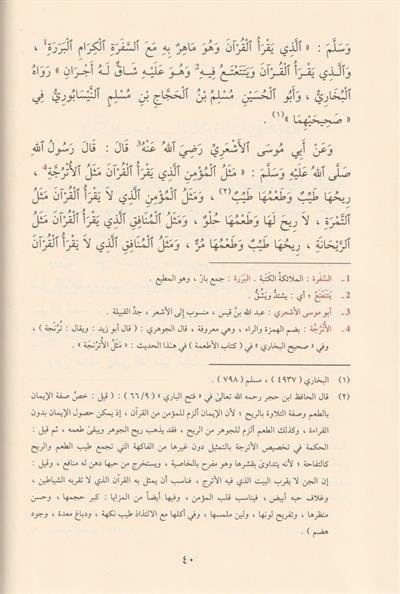 وَسَلَّمَ : « الَّذِي يَقْرَأُ الْقُرْآنَ وَهُوَ مَاهِرٌ بِهِ مَعَ السَّفَرَةِ الْكِرَامِ الْبَرَرَةِ1 ،
وَالَّذِي يَقْرَأُ الْقُرْآنَ وَيَتَتَعْتَعُ فِيهِ2 وَهُوَ عَلَيْهِ شَاقٌّ لَهُ أَجْرَانِ » رَوَاهُ
الْبُخَارِيُّ ، وَأَبُو الْحُسَيْنِ مُسْلِمُ بْنُ الْحَجَّاجِ بْنِ مُسْلِمٍ النَّيْسَابُورِيُّ فِي
« صَحِيحَيْهِمَا »(١) .
وَعَنْ أَبِي مُوسَى الأَشْعَرِيِّ رَضِيَ اللهُ عَنْهُ3 قَالَ : قَالَ رَسُولُ اللهِ
صَلَّى اللهُ عَلَيْهِ وَسَلَّمَ : « مَثَلُ الْمُؤْمِنِ الَّذِي يَقْرَأُ الْقُرْآنَ مَثَلُ الأُتْرُجَّةِ4 ،
رِيحُهَا طَيِّبٌ وَطَعْمُهَا طَيِّبٌ(٢) ، وَمَثَلُ الْمُؤْمِنِ الَّذِي لاَ يَقْرَأُ الْقُرْآنَ مَثَلُ
التَّمْرَةِ ، لاَ رِيحَ لَهَا وَطَعْمُهَا حُلْوٌ ، وَمَثَلُ الْمُنَافِقِ الَّذِي يَقْرَأُ الْقُرْآنَ مَثَلُ
الرَّيْحَانَةِ ، رِيحُهَا طَيِّبٌ وَطَعْمُهَا مُرٌّ ، وَمَثَلُ الْمُنَافِقِ الَّذِي لاَ يَقْرَأُ الْقُرْآنَ
1 ـ السَّفَرة : الملائكة الكَتَبة . البَرَرة : جمع بارّ ، وهو المطيع .
2 ـ يَتَتَعْتَعُ ؛ أي : يشتدُّ ويَشُقُّ .
3 ـ أبو موسى الأشعري : عبد الله بنُ قيس ، منسوب إلى الأشعر ، جدِّ القبيلة .
4 ـ الأُتْرُجَّة : بضم الهمزة والراء ، وهي معروفة ، قال الجوهري : ( قال أبو زيد : ويقال : تُرُنْجَة ) ،
وفي « صحيح البخاري » في ( كتاب الأطعمة ) في هذا الحديث : « مَثَلُ الأُتْرُنْجَة » .
(١) البخاري ( ٤٩٣٧ ) ، مسلم ( ٧٩٨ ) .
(٢) قال الحافظ ابن حجر رحمه الله تعالى في « فتح الباري » ( ٦٦/٩ ) : ( قيل : خصَّ صفة الإيمان
بالطعم وصفة التلاوة بالريح ؛ لأن الإيمان ألزم للمؤمن من القرآن ، إذ يمكن حصول الإيمان بدون
القراءة ، وكذلك الطعم ألزم للجوهر من الريح ، فقد يذهب ريح الجوهر ويبقىٰ طعمه ، ثم قيل :
الحكمة في تخصيص الأترجة بالتمثيل دون غيرها من الفاكهة التي تجمع طيب الطعم والريح
كالتفاحة ؛ لأنه يتداوىٰ بقشرها وهو مفرح بالخاصية ، ويستخرج من حبها دهن له منافع ، وقيل :
إن الجن لا يقرب البيت الذي فيه الأترج ، فناسب أن يمثل به القرآن الذي لا تقربه الشياطين ،
وغلاف حبه أبيض ، فيناسب قلب المؤمن ، وفيها أيضاً من المزايا : كبر حجمها ، وحسن
منظرها ، وتفريح لونها ، ولين ملمسها ، وفي أكلها مع الالتذاذ طيب نكهة ، ودباغ معدة ، وجودة
هضم ) .
٤٠